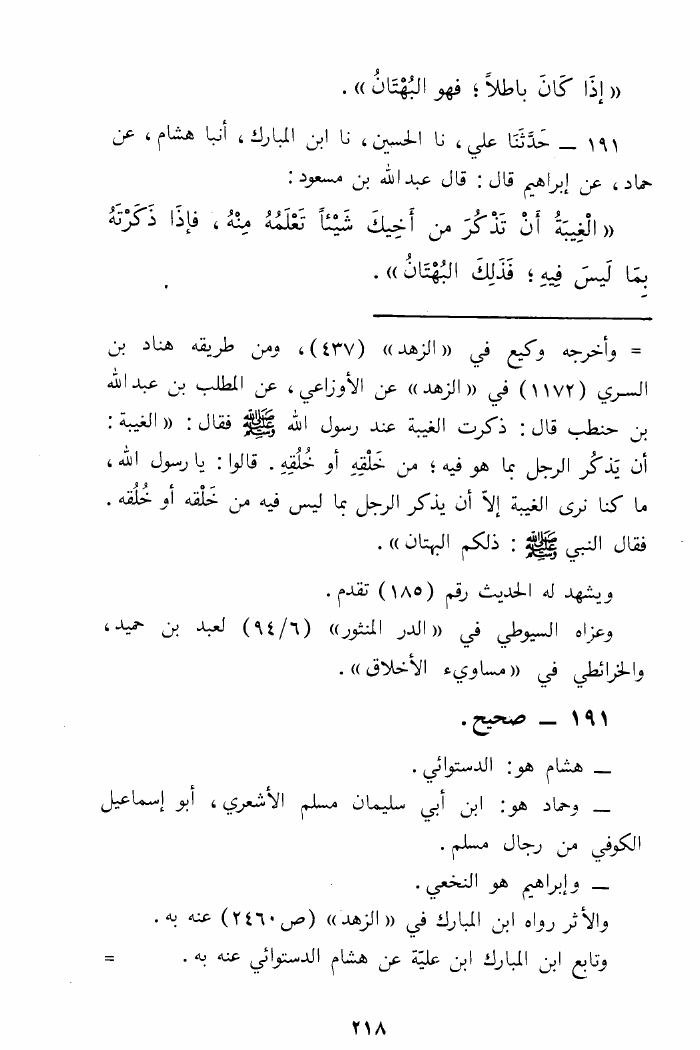 « إِذَا كَانَ باطلاً ؛ فهو البُهْتَانُ » .
١٩١ ــ حَدَّثَنَا علي ، نا الحسين ، نا ابن المبارك ، أنبا هشام ، عن
حماد ، عن إبراهيم قال : قال عبدالله بن مسعود :
« الْغِيبَةُ أَنْ تَذْكُرَ من أَخِيكَ شَيْئاً تَعْلَمُهُ مِنْهُ ، فإذَا ذَكَرْتَهُ
بِمَا لَيسَ فِيهِ ؛ فَذَلِكَ البُهْتَانُ » .
= وأخرجه وكيع في « الزهد » (٤٣٧) ، ومن طريقه هناد بن
السري (١١٧٢) في « الزهد » عن الأوزاعي ، عن المطلب بن عبدالله
بن حنطب قال : ذكرت الغيبة عند رسول الله ﷺ فقال : « الغيبة :
أن يَذكُر الرجل بما هو فيه ؛ من خَلْقِهِ أو خُلُقِهِ . قالوا : يا رسول الله ،
ما كنا نرى الغيبة إلاّ أن يذكر الرجل بما ليس فيه من خَلْقه أو خُلُقه .
فقال النبي ﷺ : ذلكم البهتان » .
ويشهد له الحديث رقم (١٨٥) تقدم .
وعزاه السيوطي في « الدر المنثور » (٩٤/٦) لعبد بن حميد ،
والخرائطي في « مساويء الأخلاق » .
١٩١ ــ صحيح .
ــ هشام هو : الدستوائي .
ــ وحماد هو : ابن أبي سليمان مسلم الأشعري ، أبو إسماعيل
الكوفي من رجال مسلم .
ــ وإبراهيم هو النخعي .
والأثر رواه ابن المبارك في « الزهد » (ص ٢٤٦٠) عنه به .
وتابع ابن المبارك ابن عليّة عن هشام الدستوائي عنه به . =
٢١٨